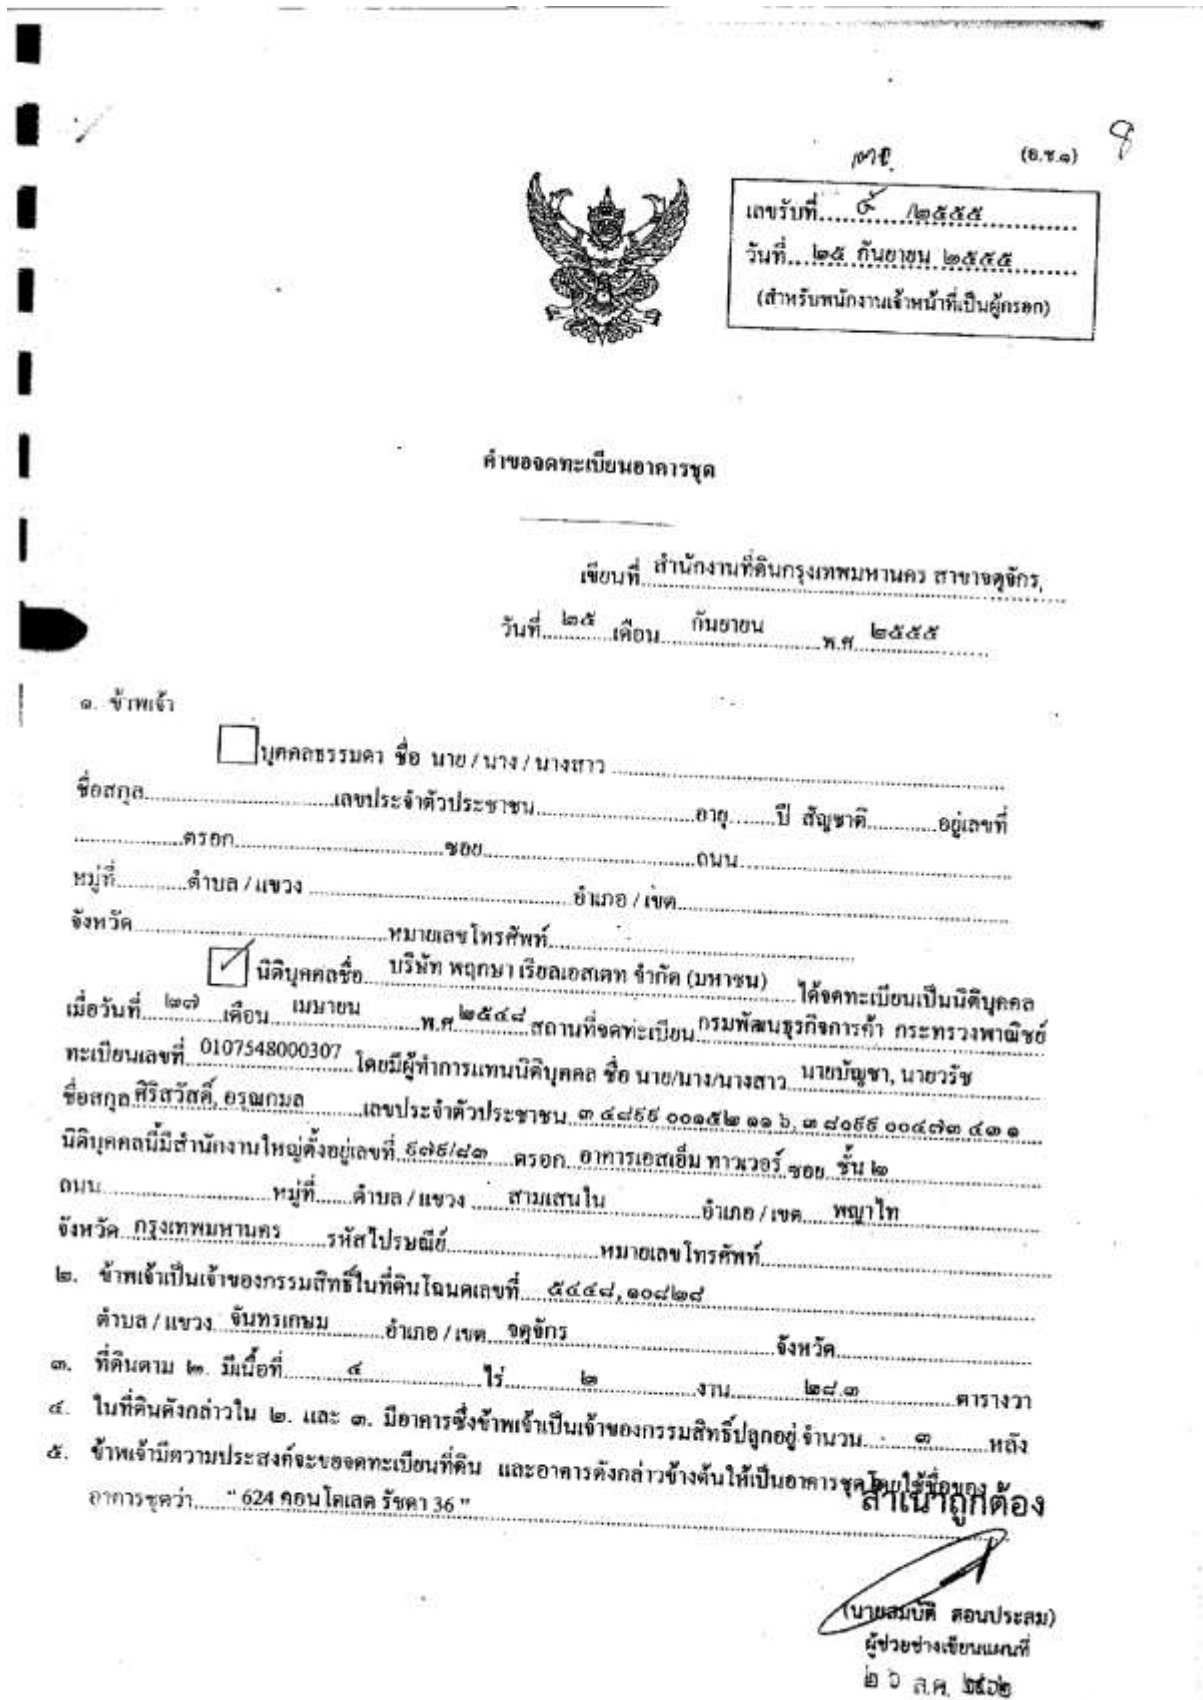 (อ.ช.๑)
เลขรับที่...... /๒๕๕๕
วันที่...๒๕ กันยายน ๒๕๕๕
(สำหรับพนักงานเจ้าหน้าที่เป็นผู้กรอก)
คำขอจดทะเบียนอาคารชุด
เขียนที่ สำนักงานที่ดินกรุงเทพมหานคร สาขาจตุจักร,
วันที่ ๒๕ เดือน กันยายน พ.ศ ๒๕๕๕
๑. ข้าพเจ้า
บุคคลธรรมดา ชื่อ นาย / นาง / นางสาว
ชื่อสกุล เลขประจำตัวประชาชน อายุ ปี สัญชาติ อยู่เลขที่
ตรอก ซอย ถนน
หมู่ที่ ตำบล / แขวง อำเภอ / เขต
จังหวัด หมายเลขโทรศัพท์
นิติบุคคลชื่อ บริษัท พฤกษา เรียลเอสเตท จำกัด (มหาชน) ได้จดทะเบียนเป็นนิติบุคคล
เมื่อวันที่ ๒๗ เดือน เมษายน พ.ศ ๒๕๔๘ สถานที่จดทะเบียน กรมพัฒนธุรกิจการค้า กระทรวงพาณิชย์
ทะเบียนเลขที่ 0107548000307 โดยมีผู้ทำการแทนนิติบุคคล ชื่อ นาย/นาง/นางสาว นายบัญชา, นายวรัช
ชื่อสกุล ศิริสวัสดิ์, อรุณกมล เลขประจำตัวประชาชน
นิติบุคคลนี้มีสำนักงานใหญ่ตั้งอยู่เลขที่ ๙๗๙/๘๓ ตรอก อาคารเอสเอ็ม ทาวเวอร์ ซอย ชั้น ๒
ถนน หมู่ที่ ตำบล / แขวง สามเสนใน อำเภอ / เขต พญาไท
จังหวัด กรุงเทพมหานคร รหัสไปรษณีย์ หมายเลขโทรศัพท์
๒. ข้าพเจ้าเป็นเจ้าของกรรมสิทธิ์ในที่ดินโฉนดเลขที่ ๕๔๔๘, ๑๐๘๒๘
ตำบล / แขวง จันทรเกษม อำเภอ / เขต จตุจักร จังหวัด
๓. ที่ดินตาม ๒. มีเนื้อที่ ๔ ไร่ ๒ งาน ๒๘.๓ ตารางวา
๔. ในที่ดินดังกล่าวใน ๒. และ ๓. มีอาคารซึ่งข้าพเจ้าเป็นเจ้าของกรรมสิทธิ์ปลูกอยู่ จำนวน ๓ หลัง
๕. ข้าพเจ้ามีความประสงค์จะขอจดทะเบียนที่ดิน และอาคารดังกล่าวข้างต้นให้เป็นอาคารชุดโดยใช้ชื่อของ
อาคารชุดว่า " 624 คอนโดเลต รัชดา 36 "
สำเนาถูกต้อง
(นายสมบัติ สอนประสม)
ผู้ช่วยช่างเขียนแผนที่
๒ ๖ ส.ค. ๒๕๖๒